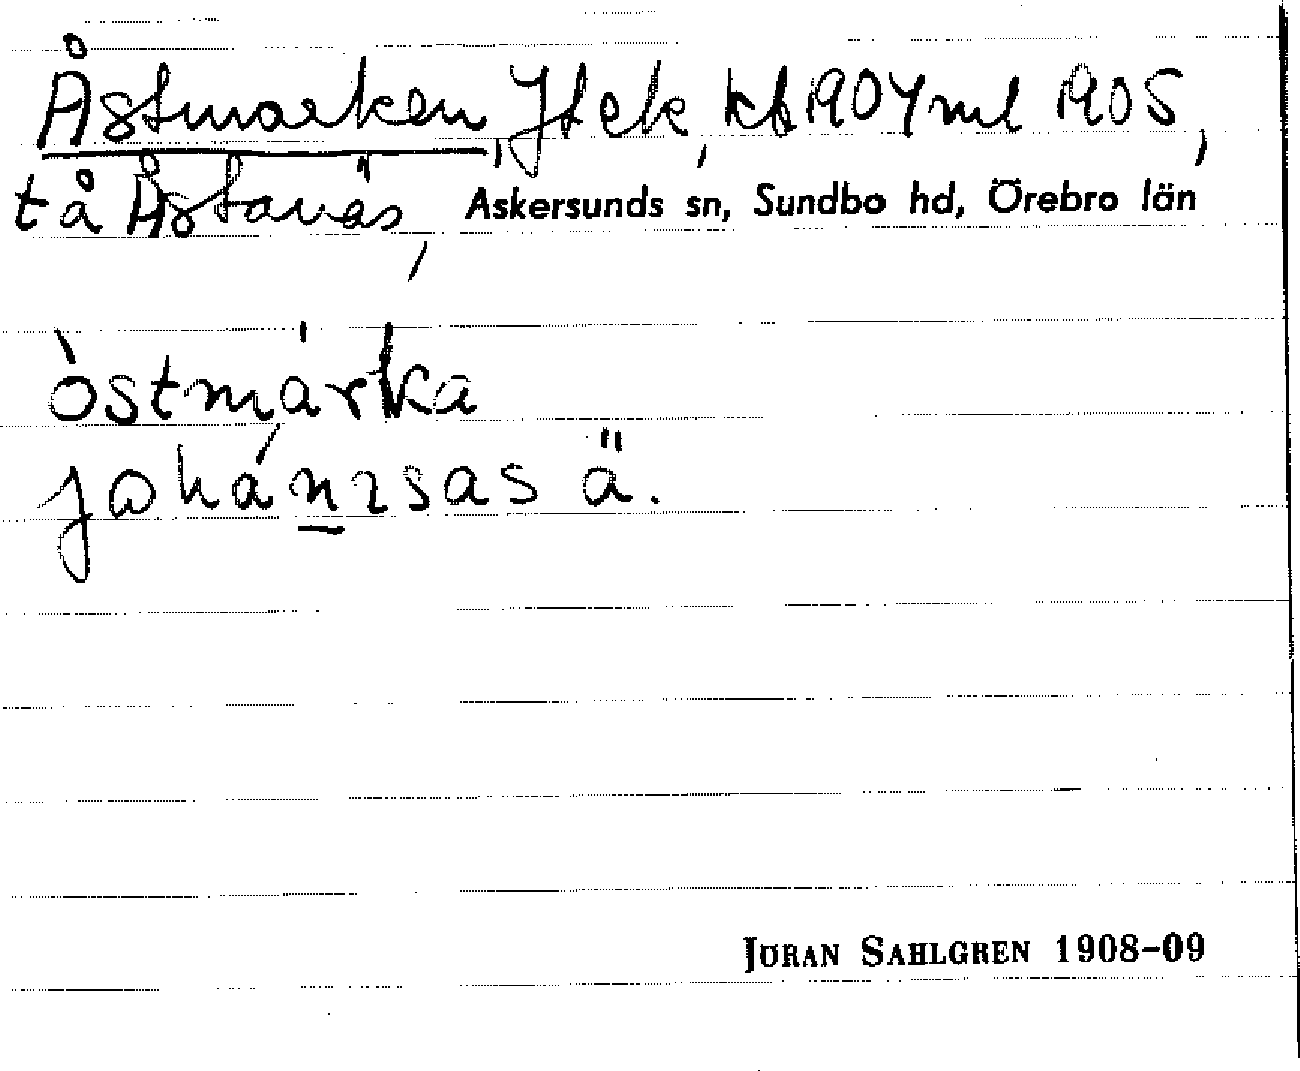 Åstmarken, Jt ek, kb 1904 ml 1905,
t å Åstanäs, Askersunds sn, Sundbo hd, Örebro län
òstmárka
johánɪsas ä.
JÖRAN SAHLGREN 1908-09